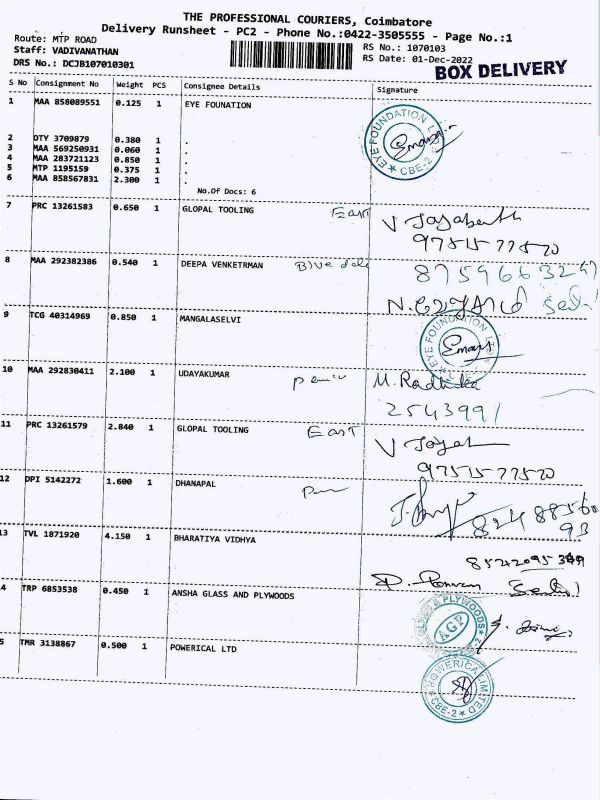 THE PROFESSIONAL COURIERS, Coimbatore
Delivery Runsheet - PC2 - Phone No.:0422-3505555 - Page No.:1
Route: MTP ROAD
Staff: VADIVANATHAN
DRS No.: DCJB107010301
RS No.: 1070103
RS Date: 01-Dec-2022
BOX DELIVERY
S No Consignment No Weight PCS Consignee Details Signature
1 MAA 858089551 0.125 1 EYE FOUNATION
EYE FOUNDATION CBE-2
2 DTY 3709879 0.380 1 .
3 MAA 569250931 0.060 1 .
4 MAA 283721123 0.850 1 .
5 MTP 1195159 0.375 1 .
6 MAA 858567831 2.300 1 .
No.Of Docs: 6
7 PRC 13261583 0.650 1 GLOPAL TOOLING East
9751577520
8 MAA 292382386 0.540 1 DEEPA VENKETRMAN
8759663247
9 TCG 40314969 0.850 1 MANGALASELVI
EYE FOUNDATION
10 MAA 292830411 2.100 1 UDAYAKUMAR M. Radhika
2543991
11 PRC 13261579 2.840 1 GLOPAL TOOLING East
9751577520
12 DPI 5142272 1.600 1 DHANAPAL
8248856093
13 TVL 1871920 4.150 1 BHARATIYA VIDHYA
4 TRP 6853538 0.450 1 ANSHA GLASS AND PLYWOODS
& PLYWOODS AGP
5 TMR 3138867 0.500 1 POWERICAL LTD
POWERICA LIMITED CBE-2